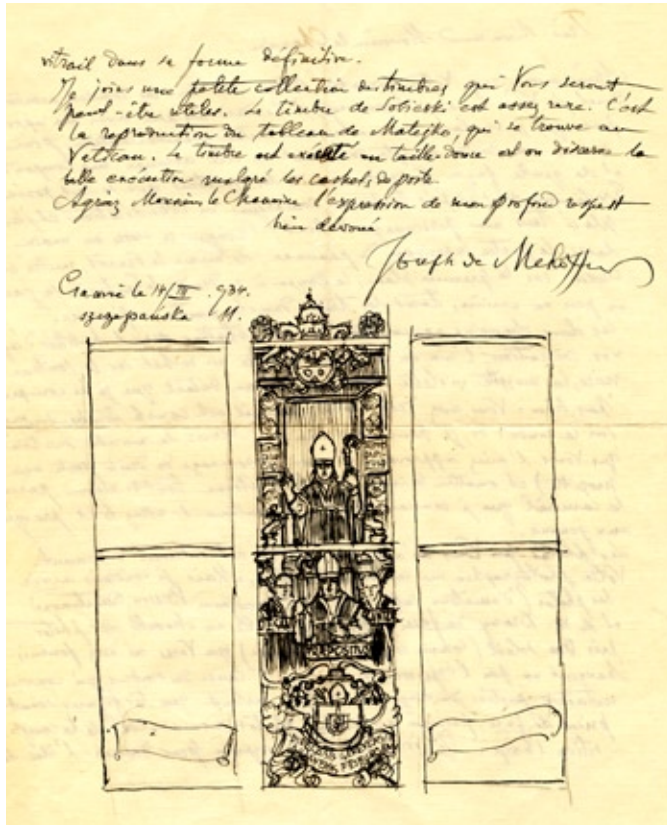 vitrail dans sa forme définitive.
Je joins une petite collection des timbres qui Vous seront
peut-être utiles. Le timbre de Sobieski est assez rare. C'est
la reproduction du tableau de Matejko, qui se trouve au
Vatican. Le timbre est exécuté en taille-douce et on discerne la
belle exécution malgré les cachets de poste
Agréez Monsieur le Chanoine l'expression de mon profond respect
bien dévoué
Joseph de Mehoffer
Cracovie le 14/III . 934.
szczepańska 11.
PREPOSITUS